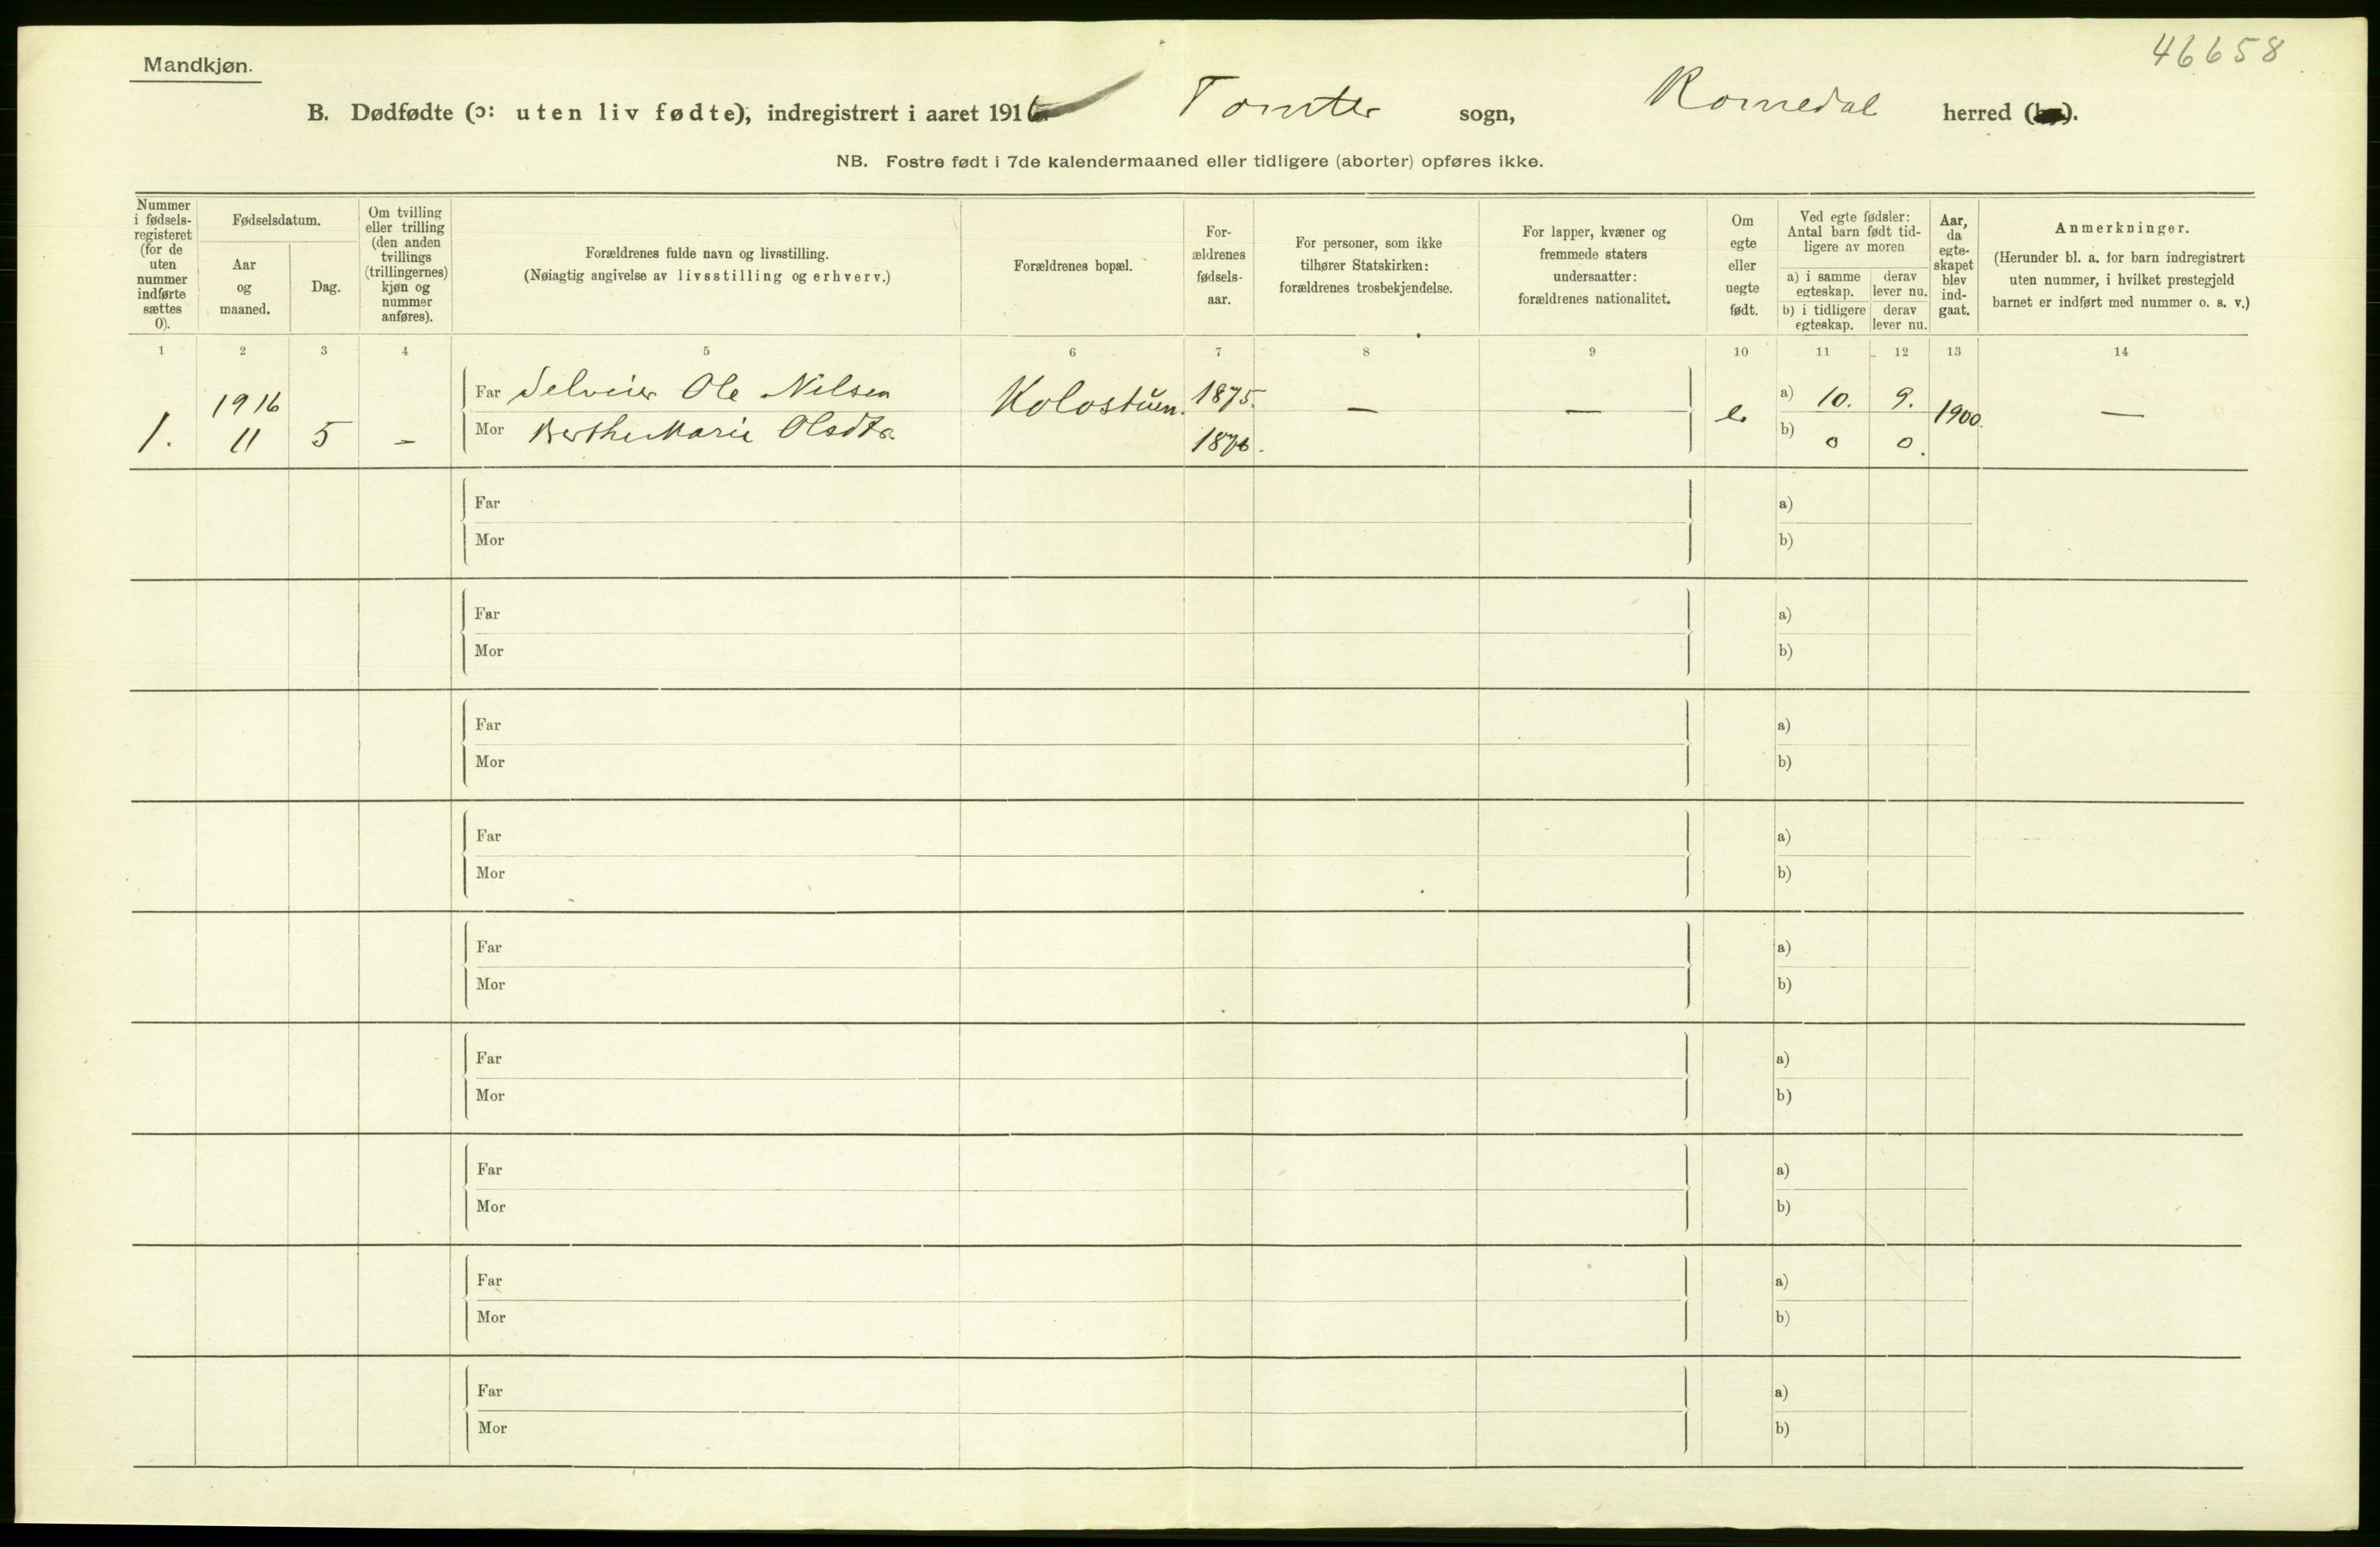 46658
Mandkjøn.
B. Dødfødte (ɔ: uten liv fødte), indregistrert i aaret 1916 Tomter sogn, Romedal herred
NB. Fostre født i 7de kalendermaaned eller tidligere (aborter) opføres ikke.
Nummer i fødsels-registeret (for de uten nummer indførte sættes 0).
Fødselsdatum.
Aar og maaned.
Dag.
Om tvilling eller trilling (den anden tvillings (trillingernes) kjøn og nummer anføres).
Forældrenes fulde navn og livsstilling.
(Nøiagtig angivelse av livsstilling og erhverv.)
Forældrenes bopæl.
For-ældrenes fødsels-aar.
For personer, som ikke tilhører Statskirken: forældrenes trosbekjendelse.
For lapper, kvæner og fremmede staters undersaatter: forældrenes nationalitet.
Om egte eller uegte født.
Ved egte fødsler: Antal barn født tid-ligere av moren
a) i samme egteskap.
derav lever nu.
b) i tidligere egteskap.
derav lever nu.
Aar, da egte-skapet blev ind-gaat.
Anmerkninger.
(Herunder bl. a. for barn indregistrert uten nummer, i hvilket prestegjeld barnet er indført med nummer o. s. v.)
1 2 3 4 5 6 7 8 9 10 11 12 13 14
1916 Far Selveier Ole Nilsen Kolostuen. 1875. — — e. a) 10. 9. 1900. —
1. 11 5 – Mor Berthe Marie Olsdtr. 1876. b) 0 0.
Far a)
Mor b)
Far a)
Mor b)
Far a)
Mor b)
Far a)
Mor b)
Far a)
Mor b)
Far a)
Mor b)
Far a)
Mor b)
Far a)
Mor b)
Far a)
Mor b)